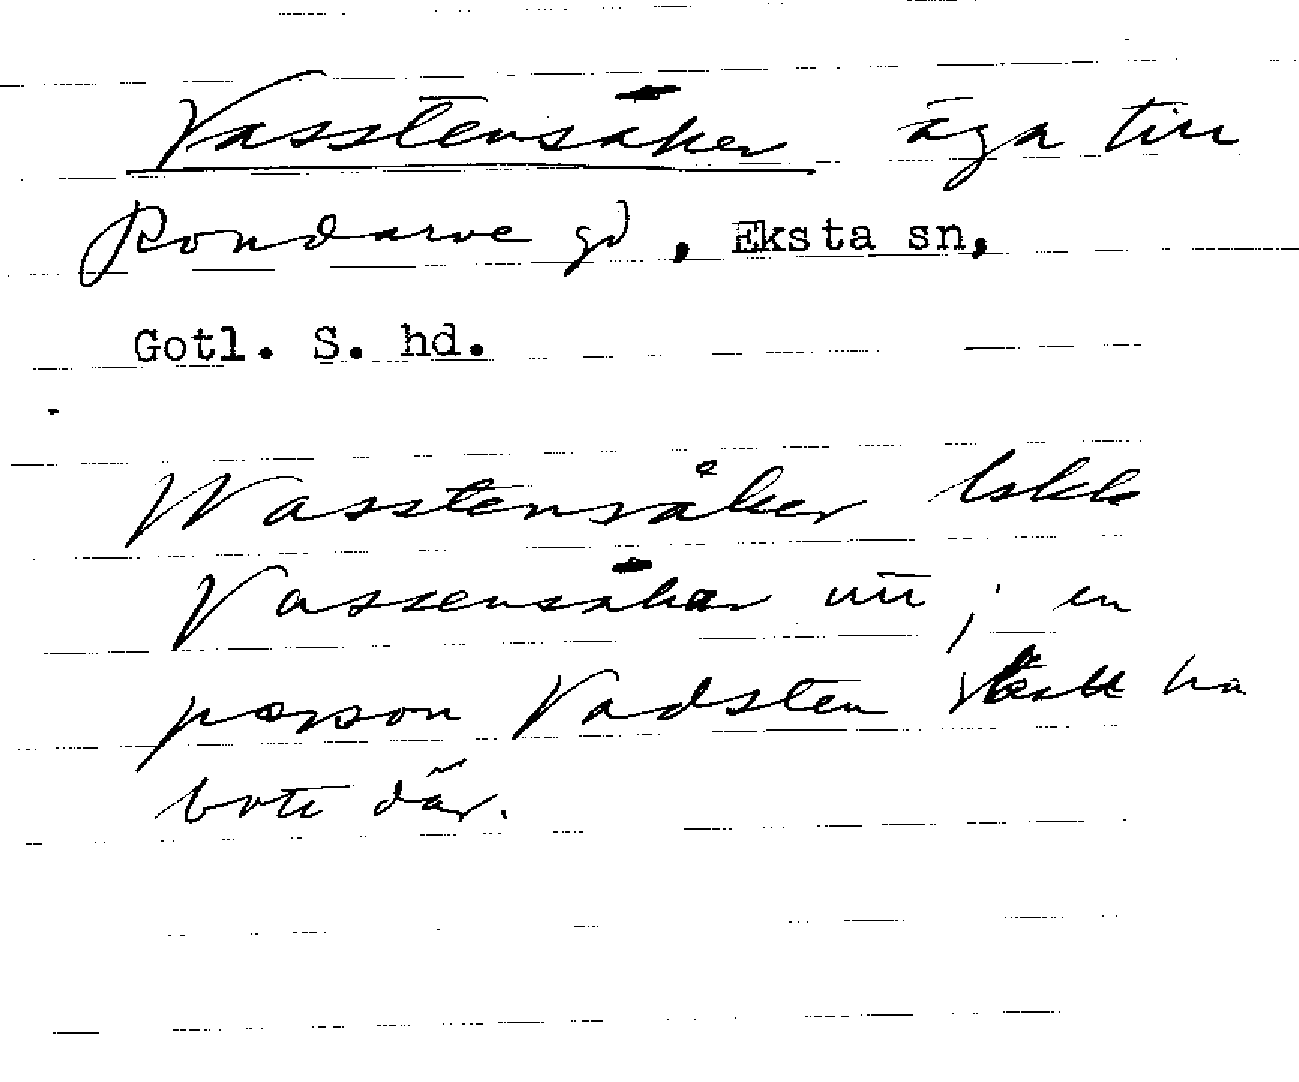 Vasstensåker äga till
Rondarve gd, Eksta sn,
Gotl. S. hd.
Wasstensåker lskk
Vassensåkar utt; en
person Vadsten skall ha
bott där.